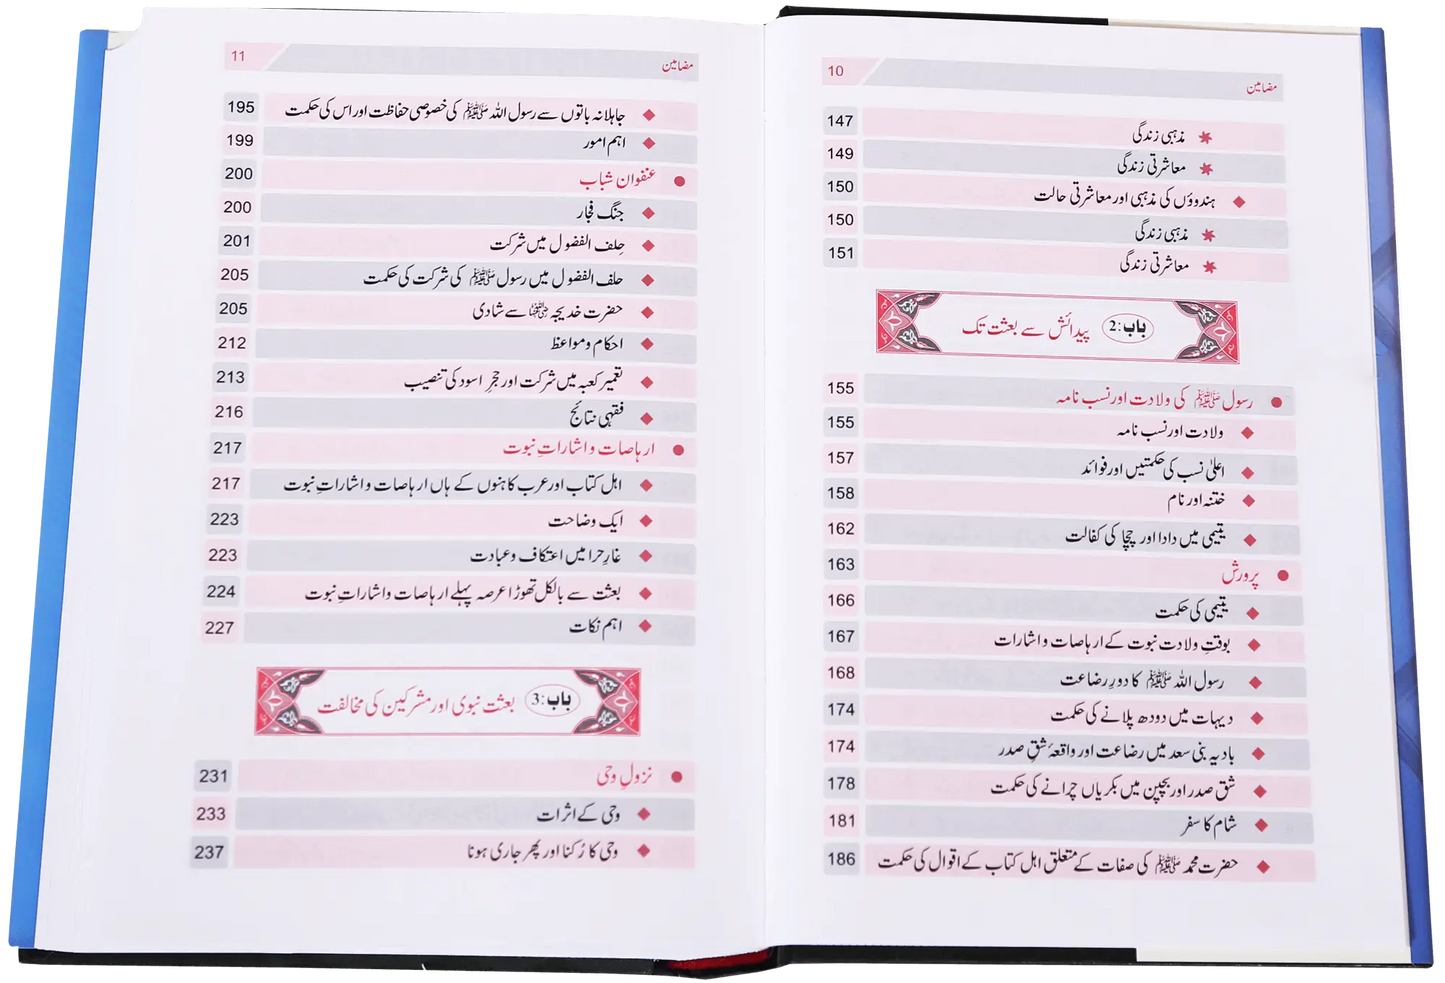 10 مضامین
مذہبی زندگی 147
معاشرتی زندگی 149
ہندوؤں کی مذہبی اور معاشرتی حالت 150
مذہبی زندگی 150
معاشرتی زندگی 151
باب:2 پیدائش سے بعثت تک
رسول ﷺ کی ولادت اور نسب نامہ 155
ولادت اور نسب نامہ 155
اعلیٰ نسب کی حکمتیں اور فوائد 157
ختنہ اور نام 158
یتیمی میں دادا اور چچا کی کفالت 162
پرورش 163
یتیمی کی حکمت 166
بوقتِ ولادت نبوت کے ارہاصات و اشارات 167
رسول اللہ ﷺ کا دورِ رضاعت 168
دیہات میں دودھ پلانے کی حکمت 174
بادیہ بنی سعد میں رضاعت اور واقعۂ شقِ صدر 174
شق صدر اور بچپن میں بکریاں چرانے کی حکمت 178
شام کا سفر 181
حضرت محمد ﷺ کی صفات کے متعلق اہل کتاب کے اقوال کی حکمت 186
11 مضامین
جاہلانہ باتوں سے رسول اللہ ﷺ کی خصوصی حفاظت اور اس کی حکمت 195
اہم امور 199
عنفوان شباب 200
جنگ فجار 200
حِلف الفضول میں شرکت 201
حلف الفضول میں رسول ﷺ کی شرکت کی حکمت 205
حضرت خدیجہ رضی اللہ عنہا سے شادی 205
احکام و مواعظ 212
تعمیر کعبہ میں شرکت اور حجرِ اسود کی تنصیب 213
فقہی نتائج 216
ارہاصات و اشاراتِ نبوت 217
اہل کتاب اور عرب کاہنوں کے ہاں ارہاصات و اشاراتِ نبوت 217
ایک وضاحت 223
غارِ حرا میں اعتکاف و عبادت 223
بعثت سے بالکل تھوڑا عرصہ پہلے ارہاصات و اشاراتِ نبوت 224
اہم نکات 227
باب:3 بعثت نبوی اور مشرکین کی مخالفت
نزولِ وحی 231
وحی کے اثرات 233
وحی کا رُکنا اور پھر جاری ہونا 237